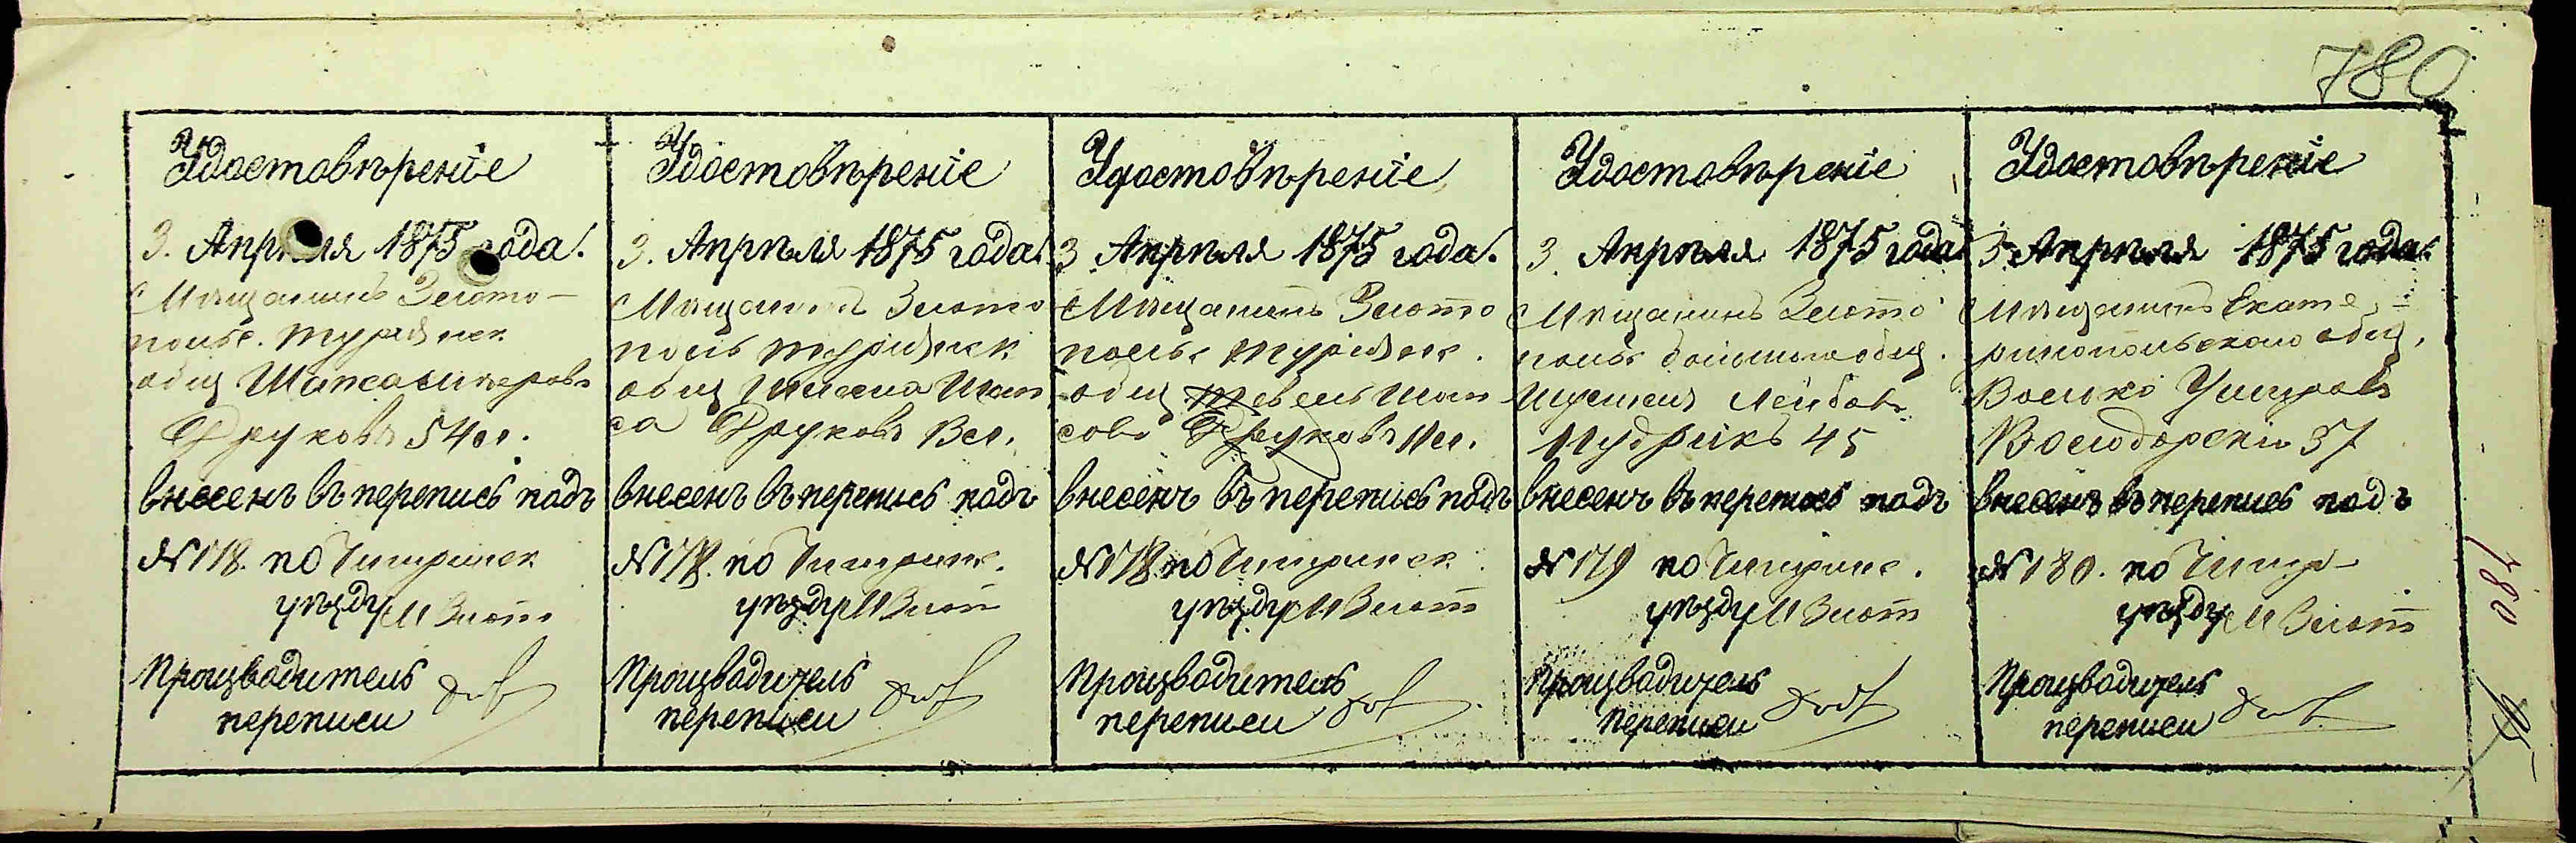 780
Удостовѣреніе
3. Апрѣля 1875 года.
Мѣщанинъ Злато-
польс. Турійск
общ Шапса Меѣровъ
Друковъ 54 л.
внесенъ въ перепись подъ
№ 178. по Чигринск
уѣзду М Злот
Производитель
переписи
Удостовѣреніе
3. Апрѣля 1875 года.
Мѣщанинъ Злато
поль Турійск
общ Шап
са Друковъ
внесенъ въ перепись подъ
№ 178. по Чигринс.
уѣзду М Злот
Производитель
переписи
Удостовѣреніе
3 Апрѣля 1875 года.
Мѣщанинъ Злото
польс Турійск.
общ Тевель Шап
совъ Друковъ 11 л.
внесенъ въ перепись подъ
№ 178 по Чигринск
уѣзду М Злот
Производитель
переписи
Удостовѣреніе
3. Апрѣля 1875 года
Мѣщанинъ Злото
польс общ.
Лейбовъ
Мудрикъ 45
внесенъ въ перепись подъ
№ 179 по Чигринс.
уѣзду М Злот
Производитель
переписи
Удостовѣреніе
3. Апрѣля 1875 года.
Мѣщанинъ Екате-
ринопольского общ.
Володарски 37
внесенъ въ перепись подъ
№ 180. по Чигр-
уѣзду М Злот
Производитель
переписи
780